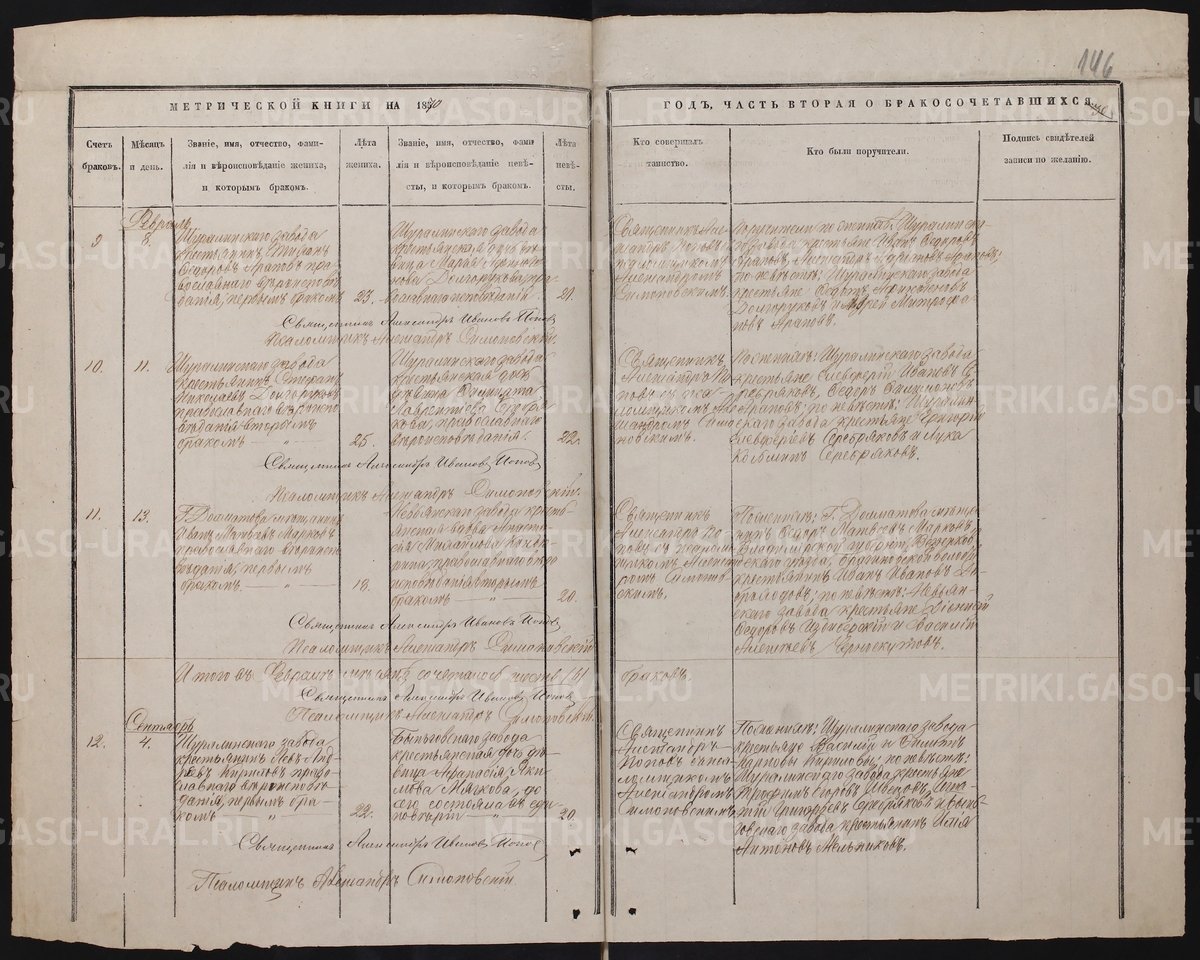 146
МЕТРИЧЕСКОЙ КНИГИ НА 18
ГОДЪ, ЧАСТЬ ВТОРАЯ О БРАКОСОЧЕТАВШИХСЯ
Счетъ браковъ.
Мѣсяцъ и день.
Званіе, имя, отчество, фами-
лія и вѣроисповѣданіе жениха,
и которымъ бракомъ.
Лѣта
жениха.
Званіе, имя, отчество, фами
лія и вѣроисповѣданіе невѣ-
сты, и которымъ бракомъ.
Лѣта
невѣ-
сты.
Кто совершалъ
таинство.
Кто были поручители.
Подпись свидѣтелей
записи по желанію.
Февраль
9
8.
Шуралинскаго завода
крестьянинъ
Ѳедоровъ Араповъ пра-
вославнаго
первымъ бракомъ
23.
Шуралинскаго завода
крестьянская дочь дѣ-
вица Марья
Долгорукова, пра-
21.
Священникъ Але-
ксандръ Поповъ съ
псаломщикомъ
Александромъ
Симоновскимъ.
Шуралинска-
го завода крестьяне Иванъ Ѳедоровъ
Араповъ,
по невѣстѣ: Шуралинскаго завода
крестьяне
Долгоруковъ и Митрофа-
новъ Араповъ.
Священникъ Александръ Ивановъ Поповъ
Псаломщикъ Александръ Симоновскій.
10.
11.
Шуралинскаго завода
крестьянинъ Степанъ
Николаевъ Долгоруковъ
православнаго вѣроиспо-
вѣданія вторымъ
бракомъ
25.
Шуралинскаго завода
крестьянская дочь
дѣвица
Лаврентьева Серебря-
кова, православнаго
вѣроисповѣданія.
22.
Священникъ
Александръ По-
повъ съ пса-
ломщикомъ Але-
ксандромъ Симо-
новскимъ.
По женихѣ: Шуралинскаго завода
крестьяне Елевферій Ивановъ Се-
ребряковъ, Ѳедоръ
Араповъ; по невѣстѣ: Шуралин-
скаго завода крестьяне Григорій
Елевферіевъ Серебряковъ и Лука
Козьминъ Серебряковъ.
Священникъ Александръ Ивановъ Поповъ
Псаломщикъ Александръ Симоновскій.
11.
13.
Г. Долматова мѣщанинъ
Иванъ Матвѣевъ Марковъ
православнаго вѣроиспо-
вѣданія, первымъ
бракомъ.
18.
Невьянскаго завода кресть-
янская вдова Анаста-
сія Михайлова
православнаго вѣро-
исповѣданія вторымъ
бракомъ
20.
Священникъ
Александръ По-
повъ съ псалом-
щикомъ Алексан-
дромъ Симонов-
скимъ.
По женихѣ: Г. Долматова мѣща-
нинъ Ѳедоръ Матвѣевъ Марковъ,
Владимірской губерніи,
уѣзда,
крестьянинъ Иванъ Ивановъ
по невѣстѣ: Невьян-
скаго завода крестьяне Діонисій
Ѳедоровъ и Василій
Алексѣевъ Черноскутовъ.
Священникъ Александръ Ивановъ Поповъ
Псаломщикъ Александръ Симоновскій
Итого въ Февралѣ мѣсяцѣ сочеталось шесть (6)
браковъ.
Священникъ Александръ Ивановъ Поповъ
Псаломщикъ Александръ Симоновскій.
Сентябрь
12.
4.
Шуралинскаго завода
крестьянинъ Левъ Анд-
реевъ Кирилловъ право-
славнаго вѣроисповѣ-
данія, первымъ бра-
комъ
22.
Быньговскаго завода
крестьянская дочь дѣ-
вица Афанасія Яки-
мова Мягкова, до
сего состояла въ еди-
новѣріи
20.
Священникъ
Александръ
Поповъ съ пса-
ломщикомъ
Александромъ
Симоновскимъ.
По женихѣ: Шуралинскаго завода
крестьяне Василій и Симеонъ
Карповы Кирилловы; по невѣстѣ:
Шуралинскаго завода крестьяне
Трофимъ Егоровъ Швецовъ,
Григорьевъ Серебряковъ и Бынь-
говскаго завода крестьянинъ Илья
Антоновъ Мельниковъ.
Священникъ Александръ Ивановъ Поповъ
Псаломщикъ Александръ Симоновскій.
METRIKI.GASO-URAL.RU